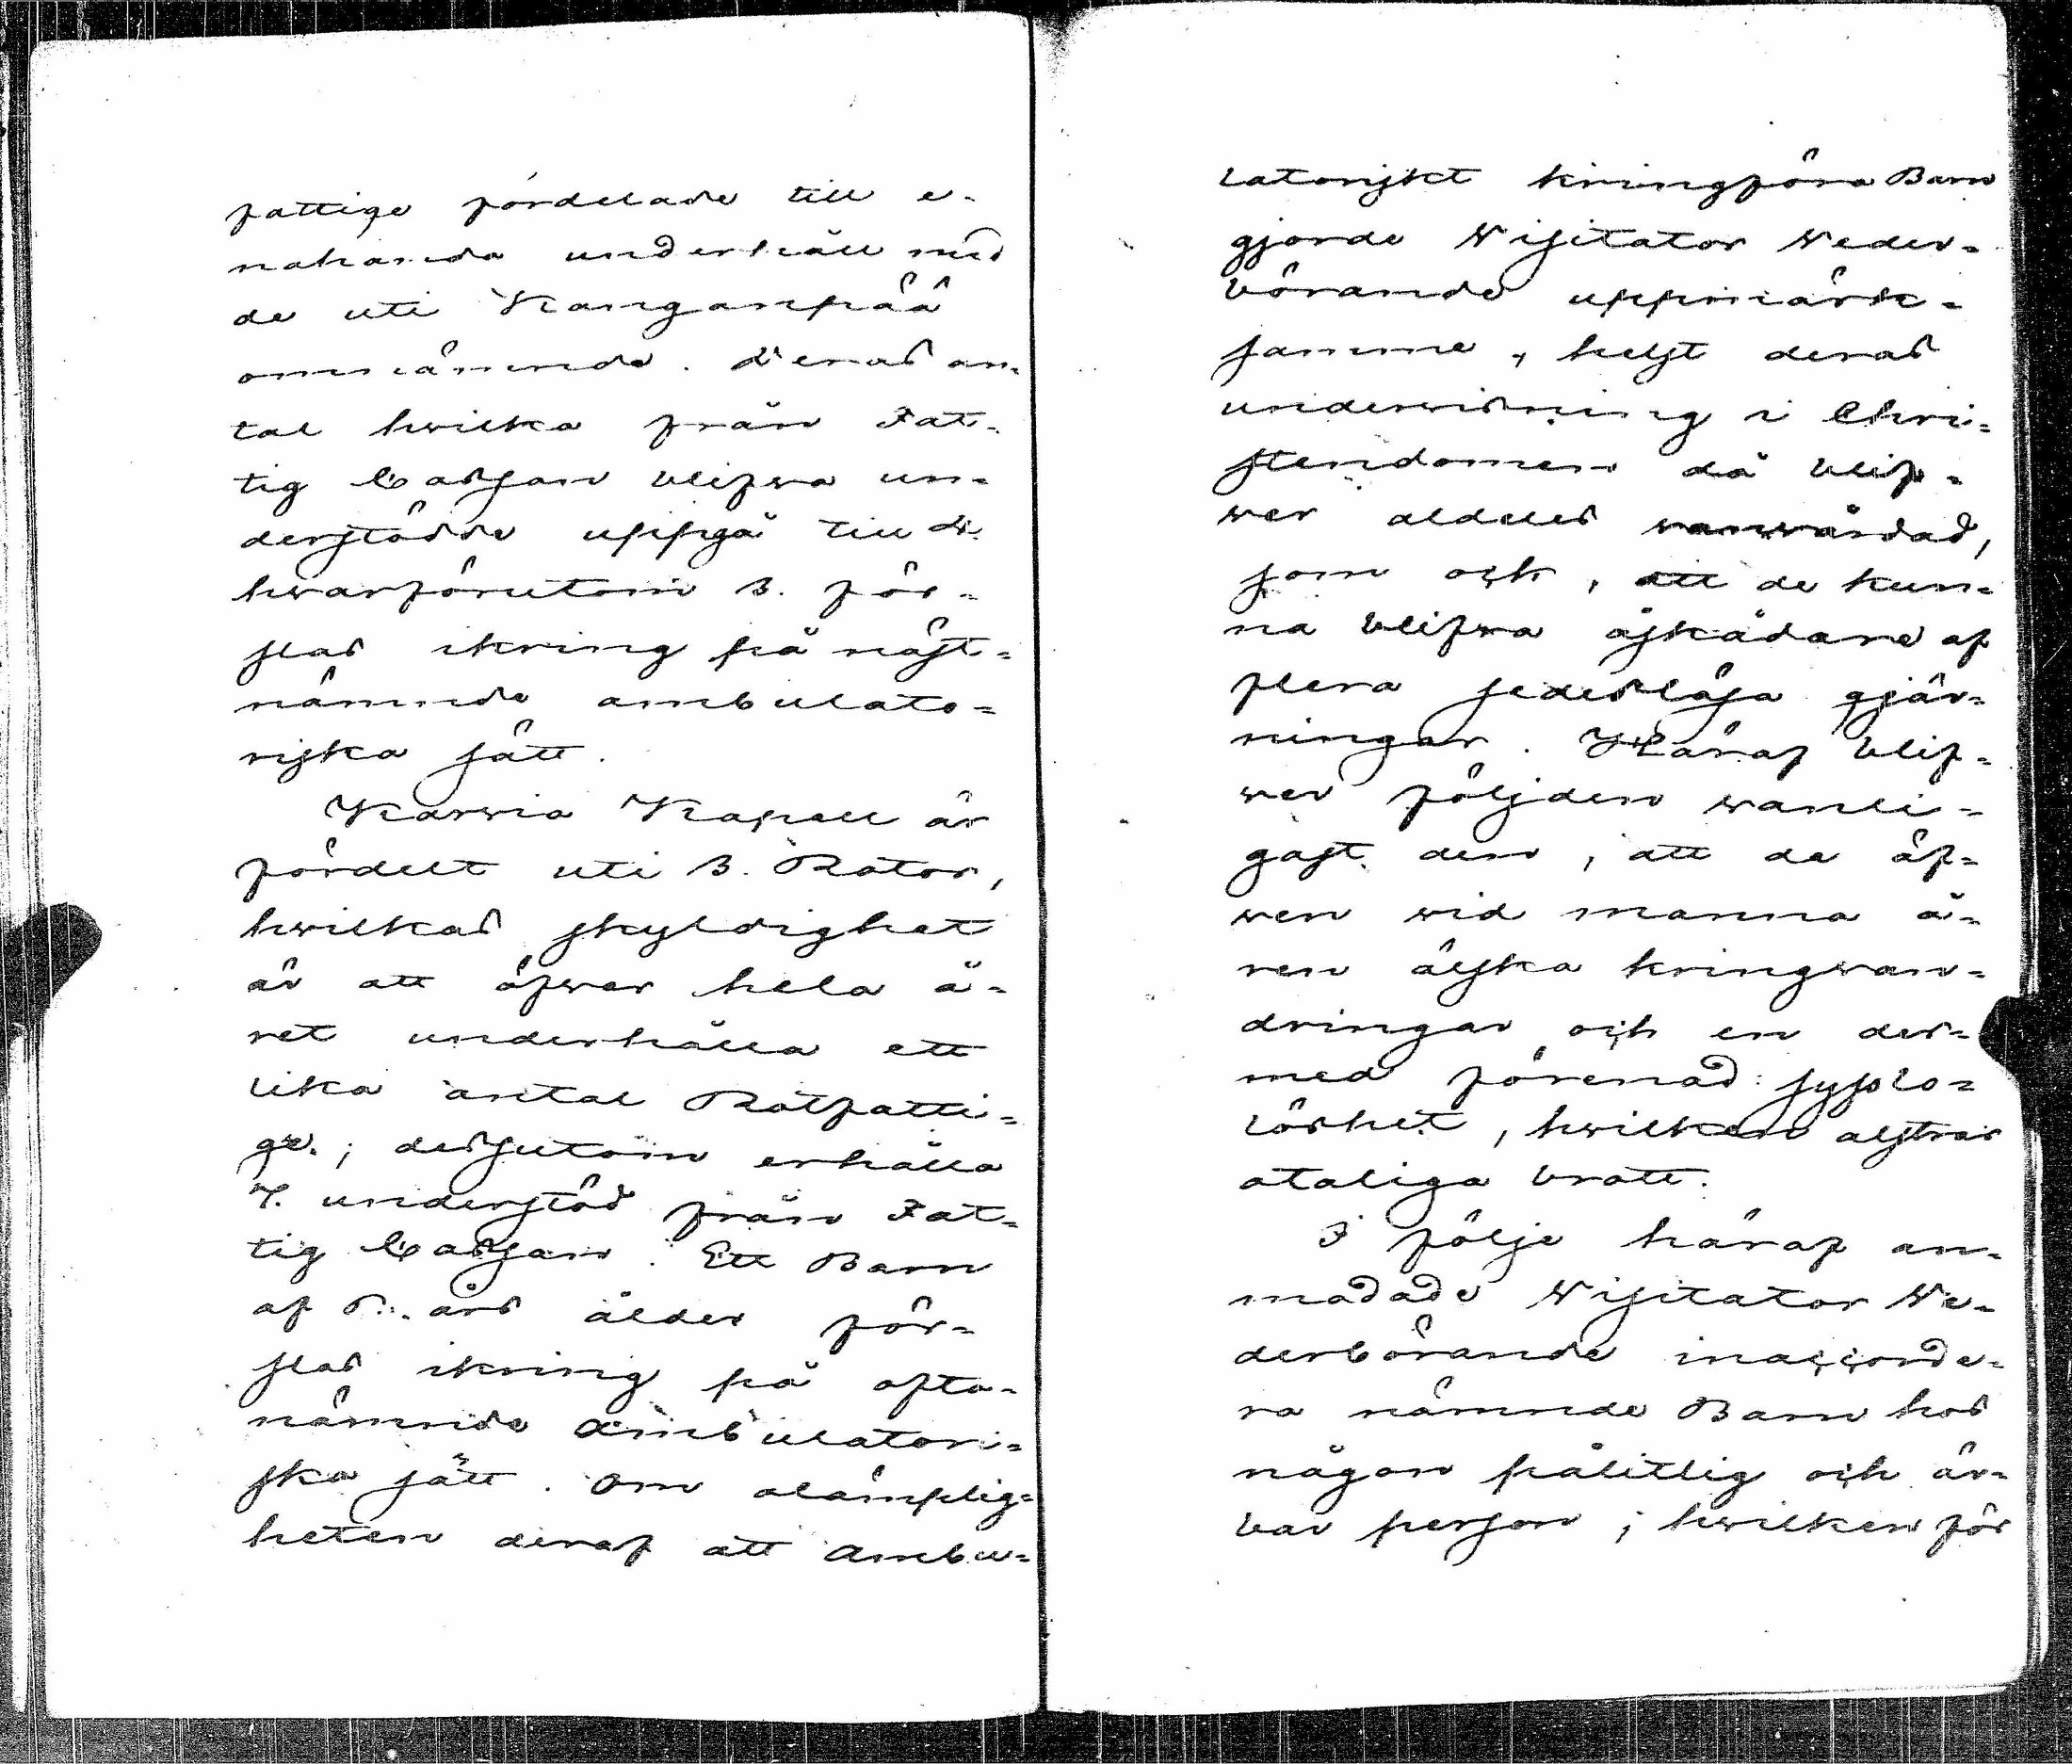 fattige fördelade till e-
nahanda underhåll med
de uti Kanganpää
omnämnde. Deras an-
tal hwilka från Fat-
tig Cassan blifwa un-
derstödde uppgå till
hwarförutom 3. för-
slas ikring på näst-
nämnde ambulato-
riska sätt.
Karvia Kapell är
fördelt uti 3. Rotor,
hwilkas skyldighet
är att öfwer hela å-
ret underhålla ett
lika antal Rotfatti-
ge.; dessutom erhålla
7. understöd från Fat-
tig Cassan. Ett Barn
af års ålder för-
slas ikring på ofta-
nämnde ambulatori-
ska sätt. Om olämplig-
heten deraf att ambu-
latoriskt kringföra Barn
gjorde Wisitator Weder-
börande uppmärk-
samme, helst deras
underwisning i Chri-
stendomen då blif-
wer aldeles wanwårdad,
som ock, att de kun-
na blifwa åskådare af
flera sedeslösa gjär-
ningar. Häraf blif-
wer följden wanli-
gast den, att de äf-
wen wid manna å-
ren älska kringwan-
dringar och en der-
med förenad sysslo-
löshet, hwilken alstrar
otaliga brott.
I följe häraf an-
modade Wisitator We-
derbörande inaccorde-
ra nämnde Barn hos
någon pålitlig och är-
bar person; hwilken för